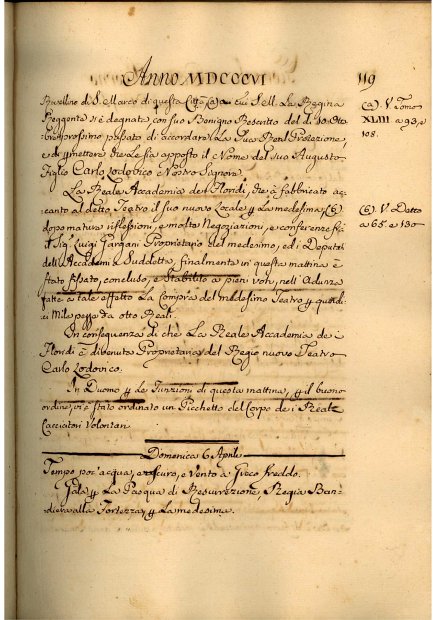 Anno MDCCCVI
119
Busellino di S. Marco di questa Città (a) a cui S. M. La Regina
Reggente si è degnata con suo Benigno Rescritto del dì 30 Otto
bre prossimo passato di accordare La Sua Real Protezione,
e di permettere che Le sia apposto il Nome del suo Augusto
Figlio Carlo Lodovico Nostro Signore.
La Reale Accademia dei Floridi, che à fabbricato ac-
canto al detto Teatro il suo nuovo Locale p. La medesima, (b)
dopo mature riflessioni, e molte Negoziazioni, e conferenze fra
il Sig. Luigi Gargani Proprietario del medesimo, ed i Deputati
dell'Accademia Suddetta, finalmente in questa mattina è
stato fissato, concluso, e Stabilito a pieni voti, nell'Adunza
fatta a tale effetto La Compra del medesimo Teatro p. quindi-
ci Mila pezze da otto Reali.
In consequenza di chè La Reale Accademia de i
Floridi è divenuta Proprietaria del Regio nuovo Teatro
Carlo Lodovico.
In Duomo p. Le Funzioni di questa mattina, e p. il buono
ordine, vi è stato ordinato un Picchetto del Corpo de i Reali
Cacciatori Volontari
Domenica 6 Aprile
Tempo poc'acqua, e oscuro, e vento a Greco freddo.
Gala p. La Pasqua di Resurrezione, Regia Ban-
diera alla Fortezza, p. La medesima.
(a). V. Tomo
XLIII a 93, e
108.
(b). V. Detto
a 65 e 130